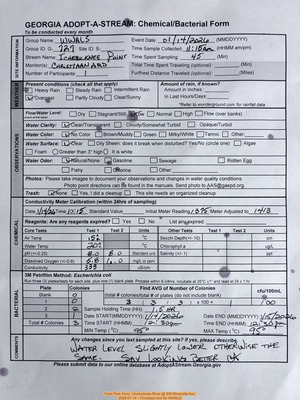 GEORGIA ADOPT-A-STREAM: Chemical/Bacterial Form
To be conducted every month
SITE INFORMATION
Group Name: WWALS Event Date: 01/14/2026 (MMDDYYYY)
Group ID: G- 727 Site ID: S- Time Sample Collected 11:15am (HHMM am/pm)
Stream Name: Time Spent Sampling 45 (Min)
Monitor(s): Total Time Spent Traveling (optional) (Min)
Number of Participants 1 Furthest Distance Traveled (optional) (Miles)
WEATHER
Present conditions (check all that apply) Amount of rain, if known?
Heavy Rain Steady Rain Intermittent Rain Amount in Inches
Overcast Partly Cloudy Clear/Sunny In Last Hours/Days
*Refer to wunderground.com for rainfall data
OBSERVATIONS
Flow/Water Level Dry Stagnant/Still Low Normal High Flow (over banks)
Water Clarity: Clear/Transparent Cloudy/Somewhat Turbid Opaque/Turbid
Water Color: No Color Brown/Muddy Green Milky/White Tannic Other:
Water Surface: Clear Oily Sheen: does it break when disturbed? Yes/No (circle one) Algae
Foam Greater than 3" high It is white
Water Odor: Natural/None Gasoline Sewage Rotten Egg
Fishy Chlorine Other:
Photos: Please take images to document your observations and changes in water quality conditions.
Photo point directions can be found in the manuals. Send photo to AAS@gaepd.org.
Trash: None Yes, I did a cleanup This site needs an organized cleanup
Conductivity Meter Calibration (within 24hrs of sampling)
Standard Value Initial Meter Reading 1395 Meter Adjusted to 1413
CHEMICAL
Reagents: Are any reagents expired? Yes No List any expired:
Core Tests Test 1 Test 2 Units Other Tests Test 1 Test 2 Units
Air Temp °C Secchi Depth
Water Temp °C Chlorophyll a
pH (+/-0.25) 8.0 8.0 Standard unit Salinity
Dissolved Oxygen (+/-0.6) mg/L or ppm
Conductivity 339 uS/cm
BACTERIAL
3M Petrifilm Method: Escherichia coli
Plate Colonies Find AVG Number of Colonies cfu/100mL
Blank 0 (total # colonies/total # of plates (do not include blank)
1 0 3 / 3 = 1 x 100 = 100
2 Sample Holding Time (HH) 1.5 HR
3 Start DATE End DATE (MMDDYYYY) 1/15/2026
Total # Colonies 3 Start TIME (HHMM) 12:30pm End TIME (HHMM) 12:30pm
MIN Temp (°C) 35° MAX Temp (°C) 35°
COMMENTS
Any changes since you last sampled at this site? If yes, please describe.
WATER LEVEL SLIGHTLY LOWER OTHERWISE THE
SAME.
Please submit data to our online database at AdoptAStream.Georgia.gov